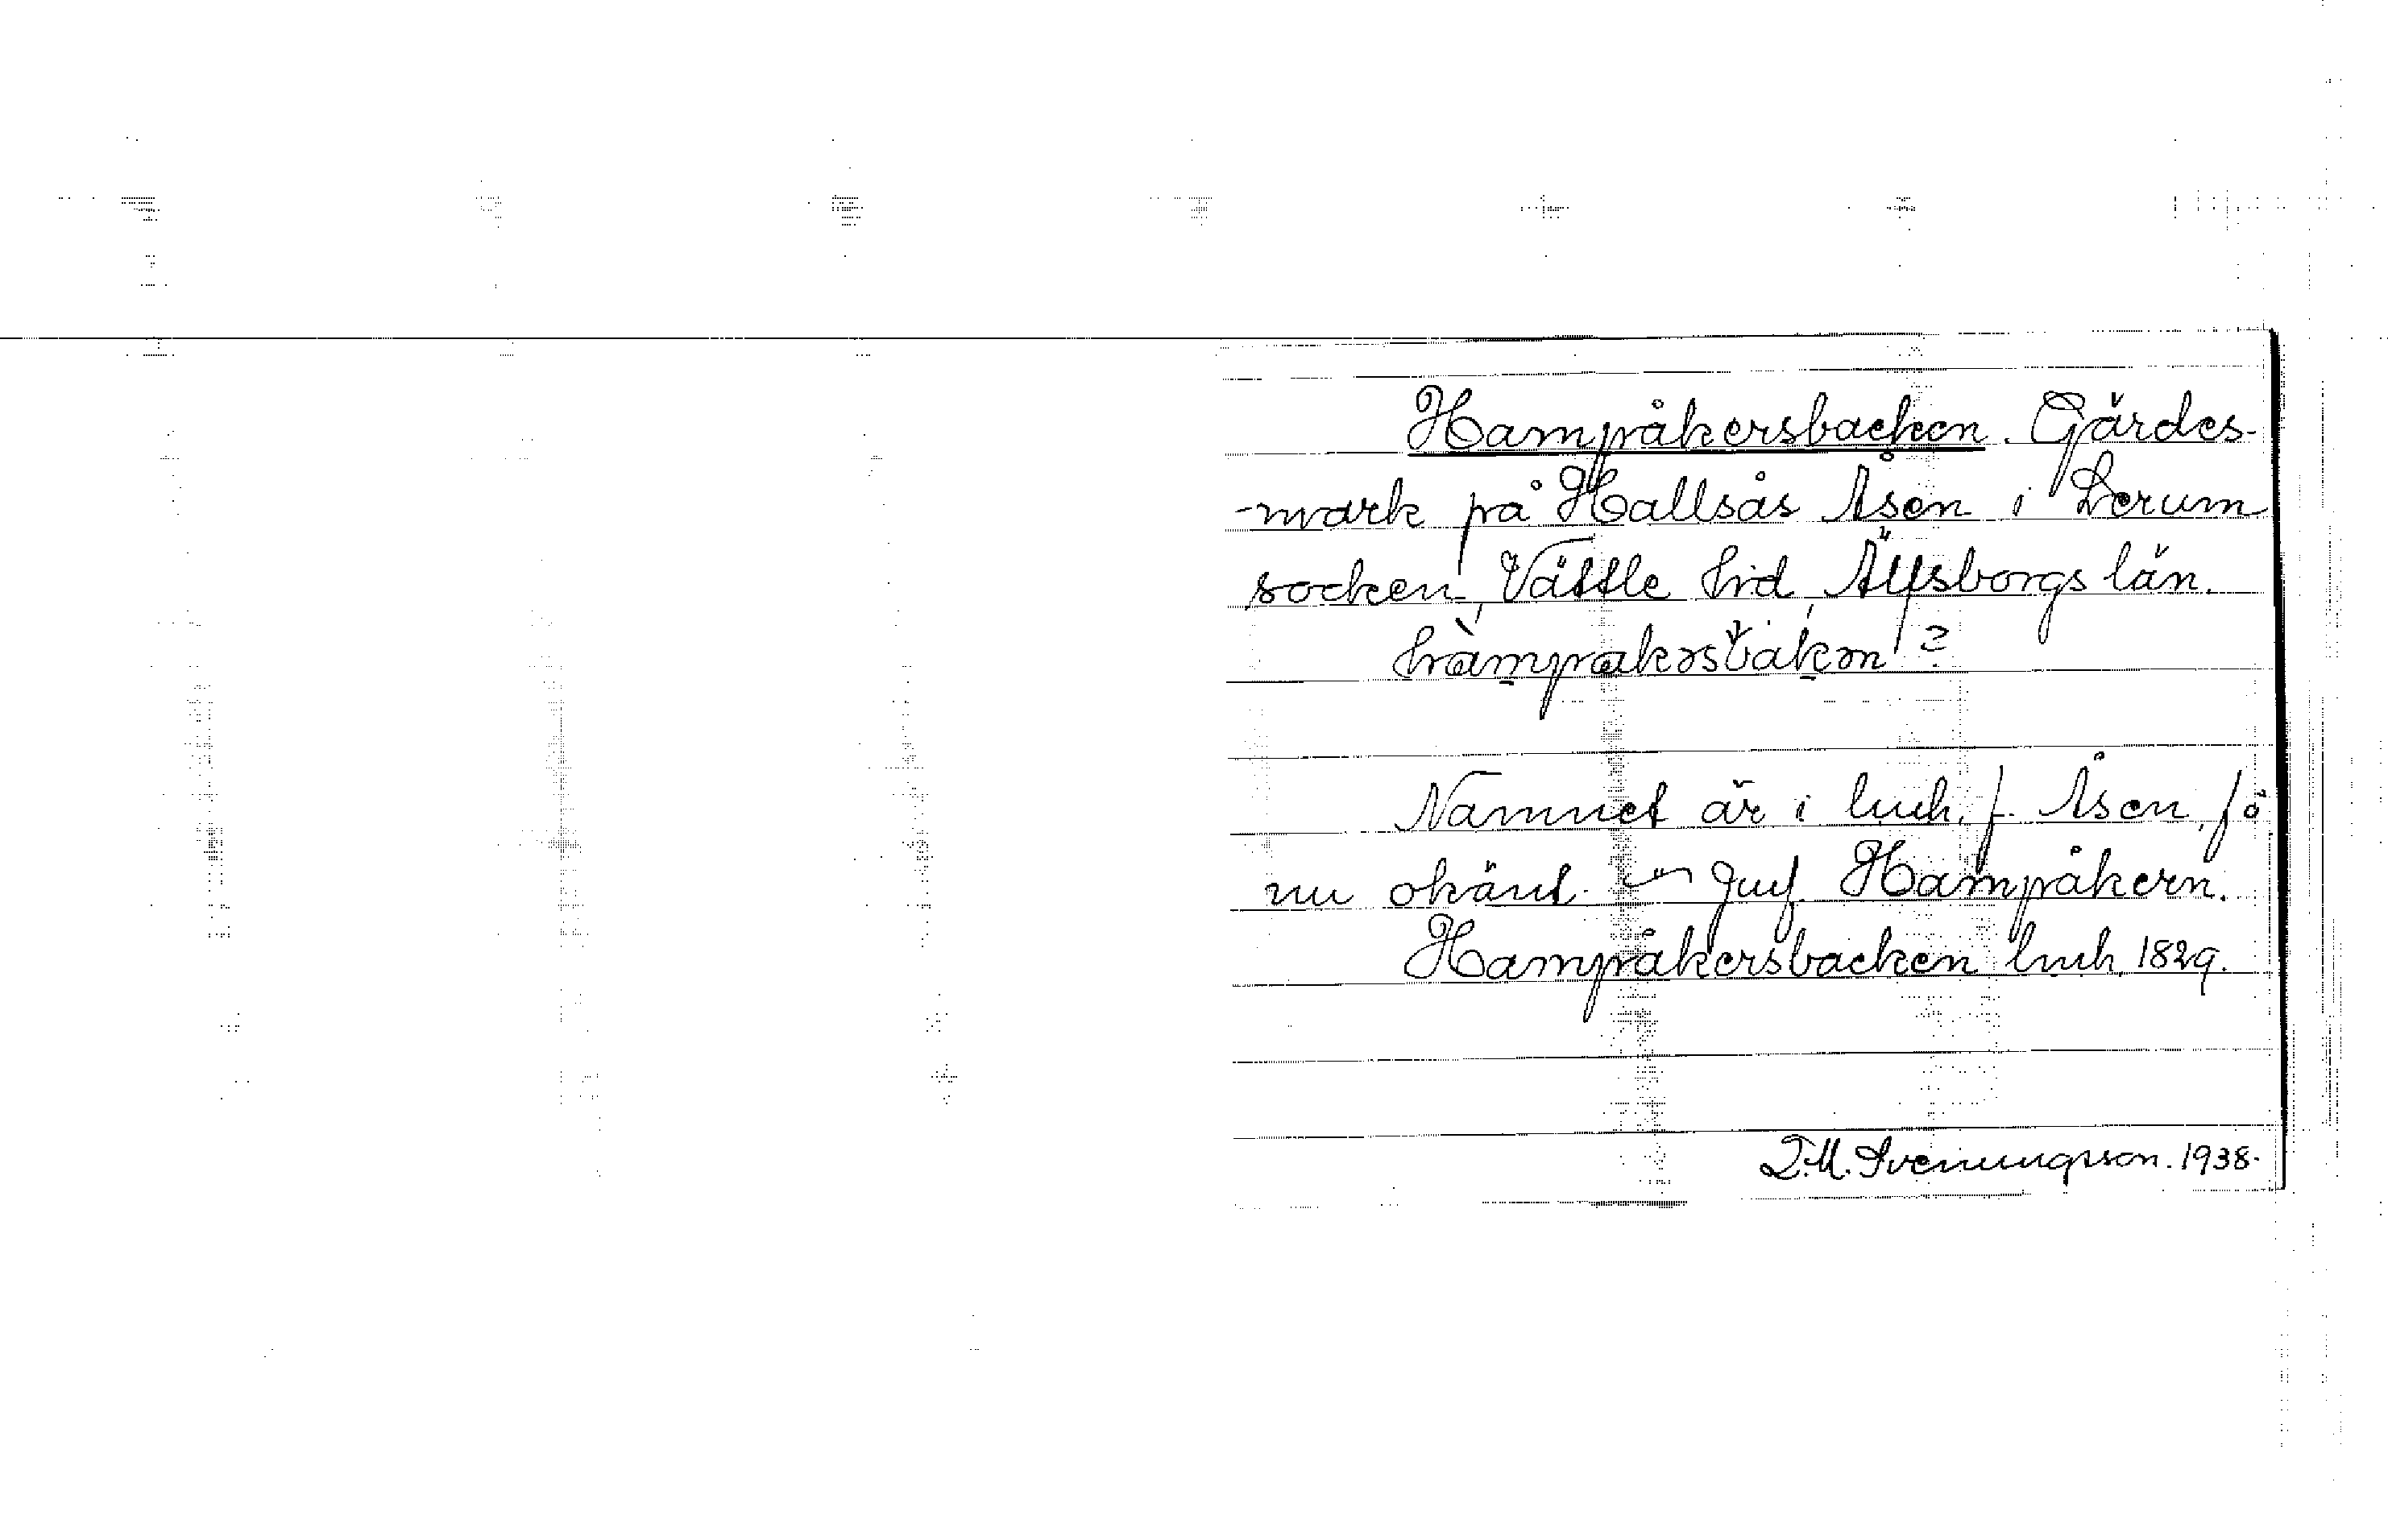 Hampåkersbacken. Gärdes-
-mark på Hallsås Åsen i Lerum
socken, Vättle hd, Älfsborgs län.
Namnet är i lmh. f. Åsen, fö
nu okänt. Jmf. Hampåkern.
Hampåkersbacken lmh. 1829.
T.M. Svenungsson. 1938.